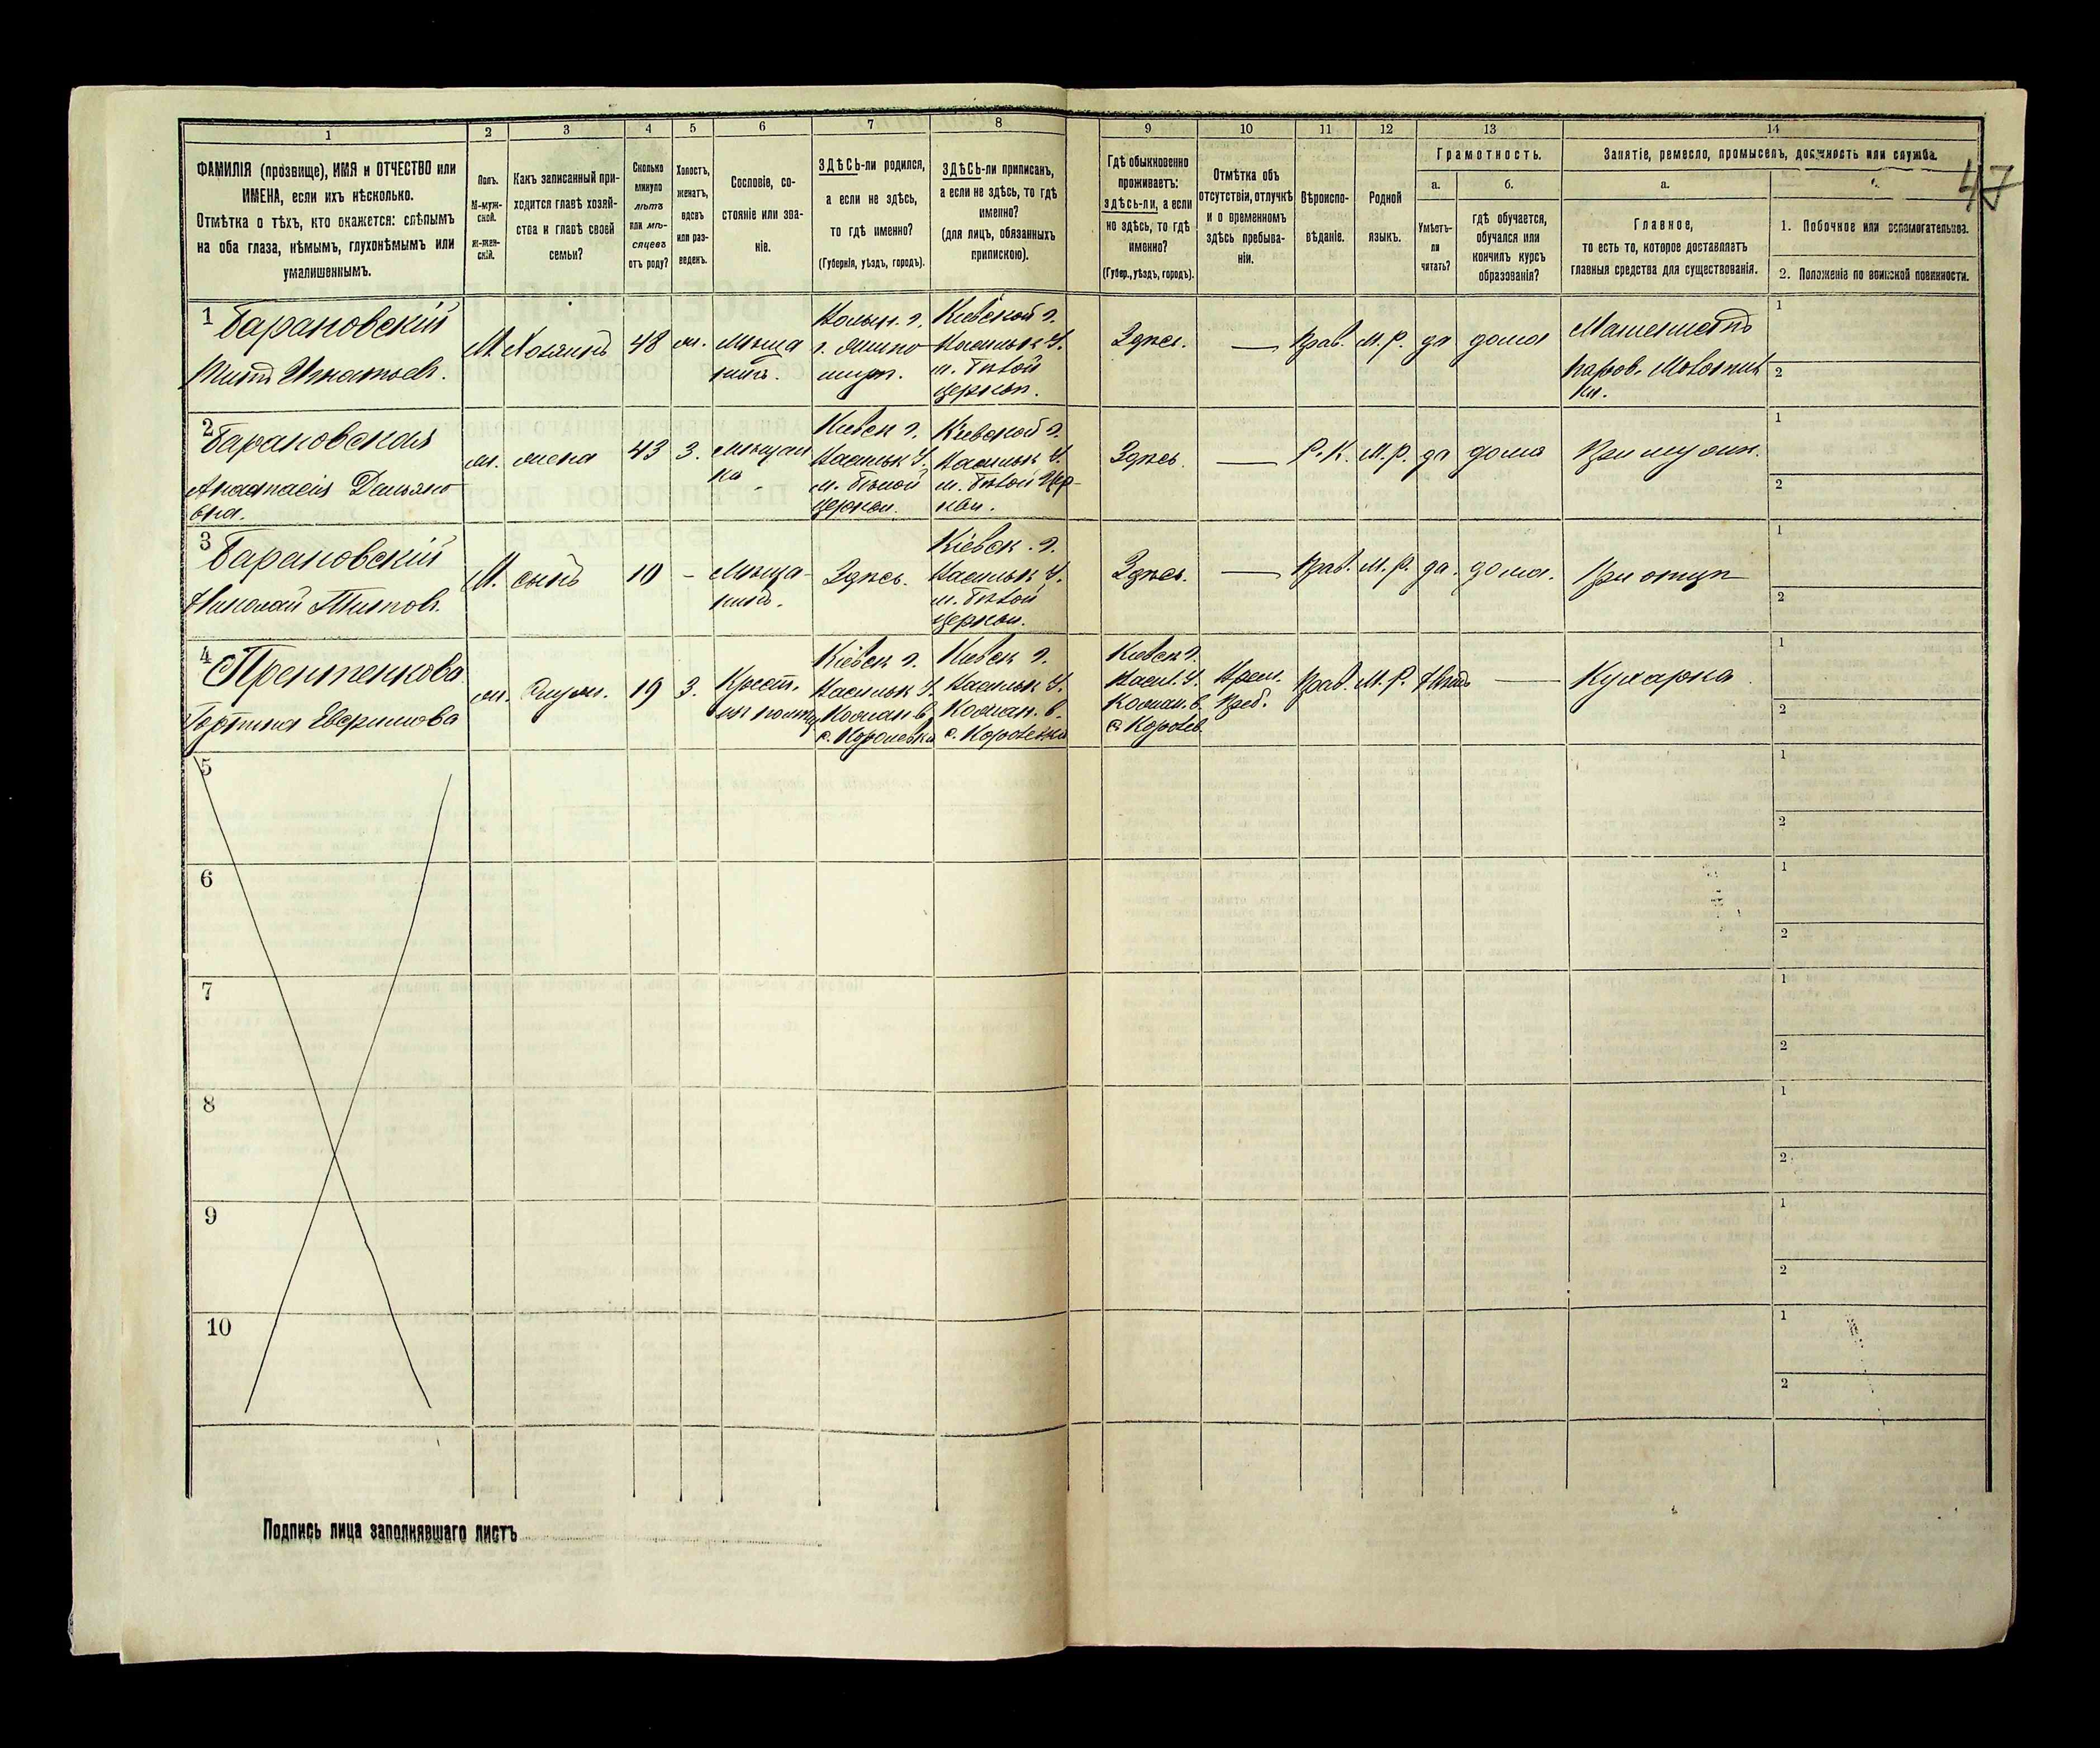 47
1 2 3 4 5 6 7 8 9 10 11 12 13 14
ФАМИЛІЯ (прозвище), ИМЯ и ОТЧЕСТВО или
ИМЕНА, если ихъ нѣсколько.
Отмѣтка о тѣхъ, кто окажется: слѣпымъ
на оба глаза, нѣмымъ, глухонѣмымъ или
умалишеннымъ.
Полъ.
М-муж-
ской.
ж-жен-
скій.
Какъ записанный при-
ходится главѣ хозяй-
ства и главѣ своей
семьи?
Сколько
минуло
лѣтъ
или мѣ-
сяцевъ
отъ роду?
Холостъ,
женатъ,
вдовъ
или раз-
веденъ.
Сословіе, со-
стояніе или зва-
ніе.
ЗДѢСЬ-ли родился,
а если не здѣсь,
то гдѣ именно?
(Губернія, уѣздъ, городъ).
ЗДѢСЬ-ли приписанъ,
а если не здѣсь, то гдѣ
именно?
(для лицъ, обязанныхъ
припискою).
Гдѣ обыкновенно
проживаетъ:
здѣсь-ли, а если
не здѣсь, то гдѣ
именно?
(Губер., уѣздъ, городъ).
Отмѣтка объ
отсутствіи, отлучкѣ
и о временномъ
здѣсь пребыва-
ніи.
Вѣроиспо-
вѣданіе.
Родной
языкъ.
Грамотность.
а.
Умѣетъ-
ли
читать?
б.
гдѣ обучается,
обучался или
кончилъ курсъ
образованія?
Занятіе, ремесло, промыселъ, должность или служба.
а.
Главное,
то есть то, которое доставляетъ
главныя средства для существованія.
1. Побочное или вспомогательное.
2. Положеніе по воинской повинности.
1 Барановскій
Титъ Игнатьев.
М.
Хозяинъ
48
ж.
Мѣща
нинъ.
Волын. г.
Кіевской г.
Васильк У.
м. Бѣлой
церкви.
Здѣсь.
—
Прав.
М.Р.
да
дома
Машинистъ
паров.
1
2
2 Барановская
Анастасія Демьяно
вна.
ж.
жена
43
З.
Мѣщан
ка
Кіевск г.
Васильк У.
м. Бѣлой
церкви.
Кіевской г.
Васильк У.
м. Бѣлой Цер-
кви.
Здѣсь.
—
Р.К.
М.Р.
да
дома
При муж.
1
2
3 Барановскій
Николай Титов.
М.
сынъ
10
-
Мѣща-
нинъ.
Здѣсь.
Кіевск. г.
Васильк У.
м. Бѣлой
церкви.
Здѣсь.
—
Прав.
М.Р.
да.
дома.
При отцѣ
1
2
4
Евфимова
ж.
Служ.
19
З.
Крест.
Кіевск г.
Васильк У.
Кожан. в.
с. Королевка
Кіевск г.
Васильк У.
Кожан. в.
с. Королевка
Кіевск г.
Васил. У.
Кожан. в.
с. Королев.
Врем.
Преб.
Прав.
М.Р.
Нѣтъ
—
Кухарка.
1
2
5
1
2
6
1
2
7
1
2
8
1
2
9
1
2
10
1
2
Подпись лица заполнявшаго листъ